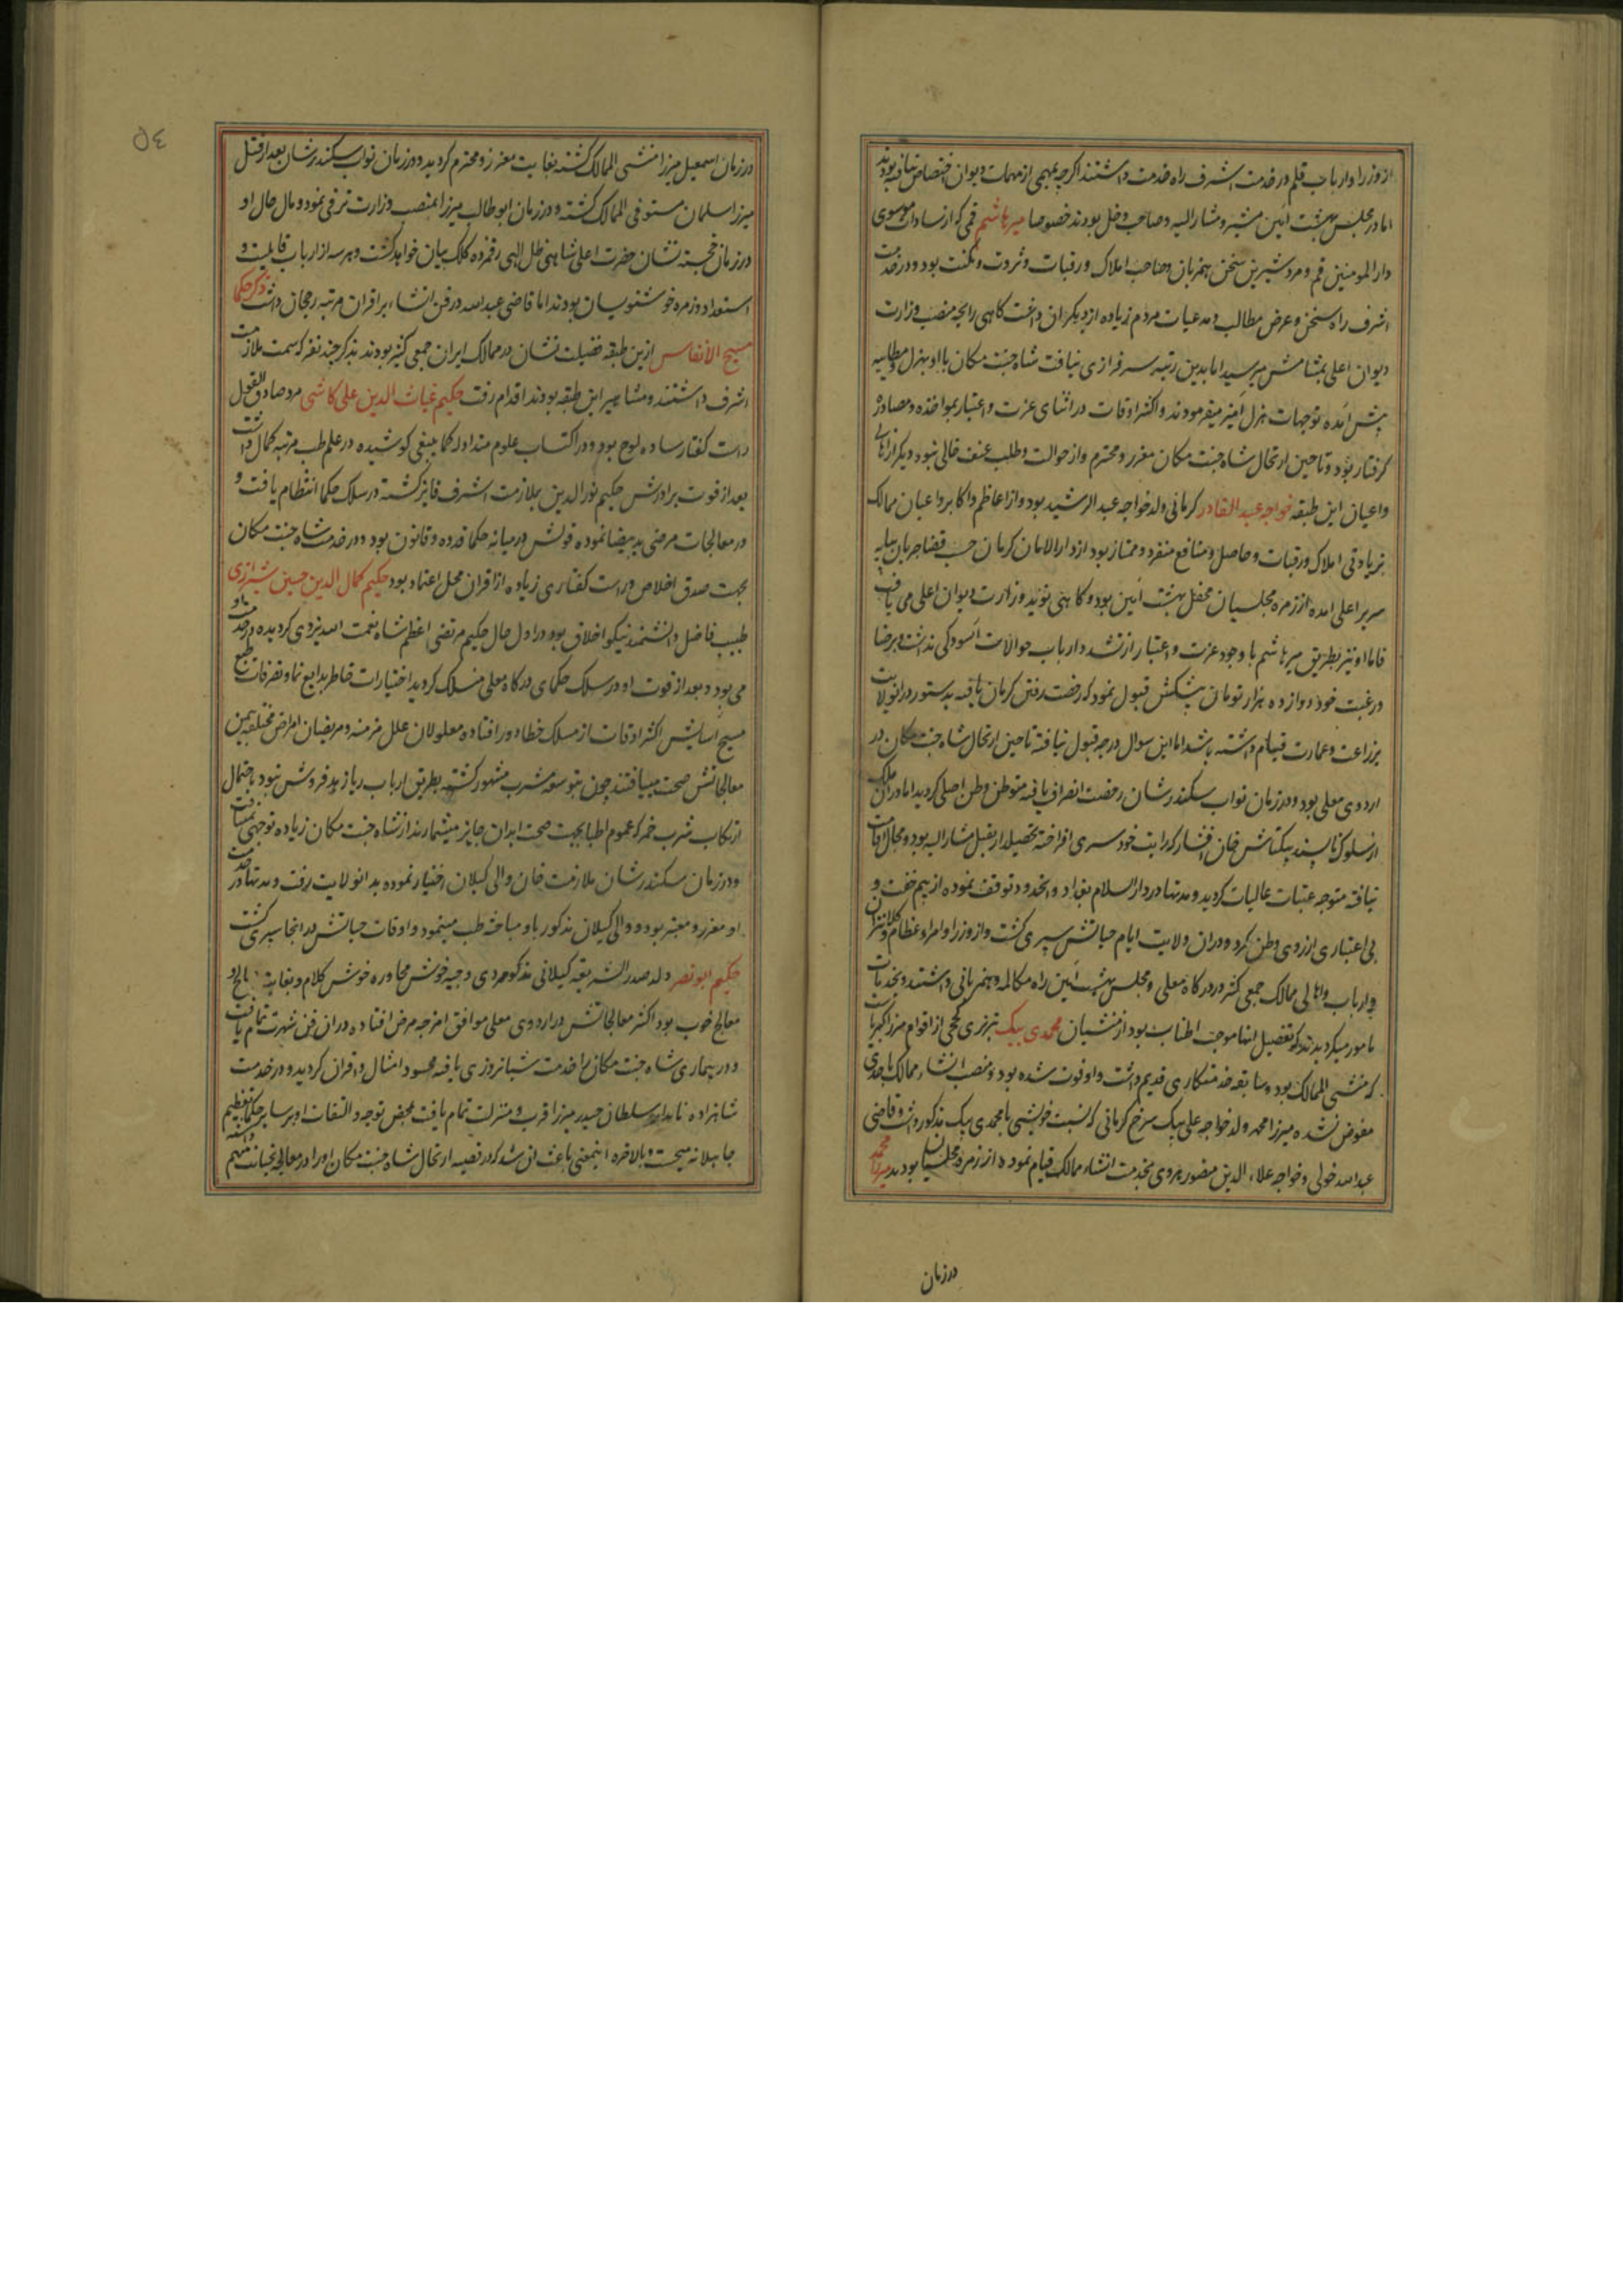 از وزرا و ارباب قلم در خدمت اشرف راه خدمت داشتند اگرچه بمهمی از مهمات دیوان اختصاص نیافته بودند
اما در مجلس بهشت آئین مشیر و مشار الیه و صاحب دخل بودند خصوصا میر هاشم قمی که از سادات موسوی
دار المومنین قم و مرد شیرین سخن همزبان و صاحب املاک و رقبات و ثروت و مکنت بود و در خدمت
اشرف راه سخن و عرض مطالب و مدعیات مردم زیاده از دیگران داشت گاهی رایحه منصب وزارت
دیوان اعلی بمشامش میرسید اما بدین رتبه سرفرازی نیافت شاه جنت مکان با او بهزل و مطایبه
پیش آمده توجهات هزل آمیز میفرمودند و اکثر اوقات در اثنای عزت و اعتبار بمواخذه و مصادره
گرفتار بود و تا حین ارتحال شاه جنت مکان معزز و محترم و از حوالت و طلب عنف خالی نبود دیگر از اهالی
و اعیان این طبقه خواجه عبد القادر کرمانی ولد خواجه عبد الرشید بود و از اعاظم و اکابر و اعیان ممالک
بزیادتی املاک و رقبات و حاصل و منافع منفرد و ممتاز بود از دار الامان کرمان حسب قضا جریان بپایه
سریر اعلی آمده از زمره مجلسیان محفل بهشت آئین بود و گاهی نوید وزارت دیوان اعلی می یافت
فاما او نیز بطریق میر هاشم با وجود عزت و اعتبار از تشدد ارباب حوالات آسودگی نداشت و برضا
و رغبت خود دوازده هزار تومان پیشکش قبول نمود که رخصت رفتن کرمان یافته بدستور در انولایت
بزراعت و عمارت قیام داشته باشد اما این سوال درجه قبول نیافته تا حین ارتحال شاه جنت مکان در
اردوی معلی بود و در زمان نواب سکندر شان رخصت انصراف یافته متوطن وطن اصلی گردید اما در آن ملک
از سلوک ناپسند بیکتاش خان افشار که رایت خود سری افراخته تحصیلدار بقبل مشار الیه بود و مجال اقامت
نیافته متوجه عتبات عالیات گردید و مدتها در دار السلام بغداد و انحدود توقف نموده از بیم خفت و
بی اعتباری آرزوی وطن نکرد و در ان ولایت ایام حیاتش سپری گشت و از وزرا و امرا و عظام و کلانتران
و ارباب و اهالی ممالک جمعی کثیر در درگاه معلی و مجلس بهشت آئین راه مکالمه و همزبانی داشتند و بخدمات
مامور میگردیدند که تفصیل آنها موجب اطناب بود از منشیان محمدی بیک تبریزی کججی از اقوام میرزا کبیر یافت
که منشی الممالک بود و سابقه خدمتکاری قدیم داشت و او فوت شده بود و منصب انشاء ممالک باحدی
مفوض نشده میرزا محمد ولد خواجه علی بیک سرخ کرمانی که نسبت خویشی با محمدی بیک مذکور داشت و قاضی
عبد الله خوئی و خواجه علاء الدین منصور یزدی بخدمت انشاء ممالک قیام نموده از زمره مجلسیان بودند میرزا محمد
در زمان
٥٤
در زمان اسمعیل میرزا منشی الممالک گشته بغایت معزز و محترم گردید و در زمان نواب سکندر شان بعد از قتل
میرزا سلمان مستوفی الممالک گشته و در زمان ابو طالب میرزا بمنصب وزارت ترقی نمود و مال حال او
در زمان خجسته نشان حضرت اعلی شاهی ظل الهی رقمزده کلک بیان خواهد گشت و هر سه از ارباب قابلیت و
استعداد و زمره خوشنویسان بودند اما قاضی عبد الله در فن انشاء بر اقران مرتبه رجحان داشت ذکر حکما
مسیح الانفاس ازین طبقه فضیلت نشان در ممالک ایران جمعی کثیر بودند بذکر چند نفر که سمت ملازمت
اشرف داشتند و مشاهیر این طبقه بودند اقدام رفت حکیم غیاث الدین علی کاشی مرد صادق القول
راست گفتار ساده لوح بود و در اکتساب علوم متداوله کما ینبغی کوشیده در علم طب مرتبه کمال داشت
بعد از فوت برادرش حکیم نور الدین بملازمت اشرف فایز گشته در سلک حکما انتظام یافت و
در معالجات مرضی ید بیضا نموده قولش در میانه حکما قدوه و قانون بود و در خدمت شاه جنت مکان
بجهت صدق اخلاص و راست گفتاری زیاده از اقران محل اعتماد بود حکیم کمال الدین حسین شیرازی
طبیب فاضل دانشمند نیکو اخلاق بود در اول حال حکیم مرتضی اعظم شاه نعمت الله یزدی گردیده در خدمت او
می بود و بعد از فوت او در سلک حکمای درگاه معلی منسلک گردید اختیارات خاطر بدایع نما و تصرفات طبع
مسیح آسایش اکثر اوقات از مسلک خطا دور افتاده معلولان علل مزمنه و مریضان امراض مختلفه بیمن
معالجاتش صحت مییافتند چون بتوسعه مشرب مشهور گشته بطریق ارباب ریا زهد فروش نبود باحتمال
ارتکاب شرب خمر که عموم اطبا بجهت صحت ابدان جایز میشمارند از شاه جنت مکان زیاده توجهی نیافت
و در زمان سکندر شان ملازمت خان والی گیلان اختیار نموده بدانولایت رفت و مدتها در خدمت
او معزز و معتبر بود و والی گیلان مذکور با او مباحثه طب مینمود و اوقات حیاتش در آنجا سپری گشت
حکیم ابو نصر ولد صدر الشریعه گیلانی مذکور مردی وجیه خوش محاوره خوش کلام و بغایت
معالج خوب بود اکثر معالجاتش در اردوی معلی موافق امزجه مرض افتاده در ان فن شهرت تمام یافت
و در بیماری شاه جنت مکان خدمت شبانروزی یافته محسود امثال و اقران گردید و در خدمت
شاهزاده نامدار سلطان حیدر میرزا قرب و منزلت تمام یافت بمحض توجه و التفات او بر سایر حکما تعظیم
جاهلانه میجست و بالاخره اینمعنی باعث آن شد که در قضیه ارتحال شاه جنت مکان او را در معالجه بخیانت متهم داشته